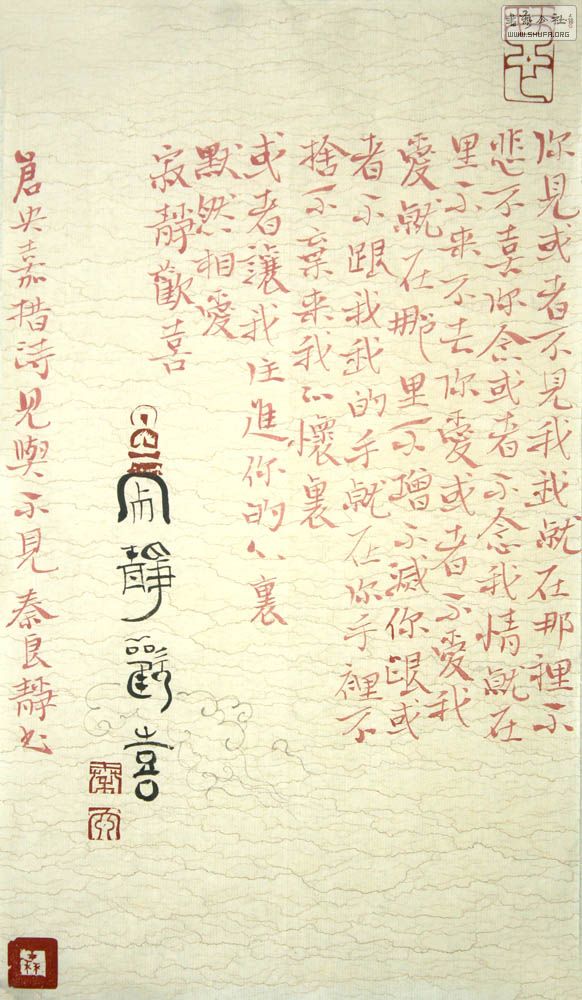 书法公社
WWW.SHUFA.ORG
你見或者不見我我就在那裡不
悲不喜你念或者不念我情就在
里不来不去你愛或者不愛我
愛就在那里不增不減你跟或
者不跟我我的手就在你手裡不
捨不棄来我心懷裏
或者讓我住進你的心裏
默然相愛
寂靜歡喜
寂靜歡喜
倉央嘉措詩見與不見 秦良靜书